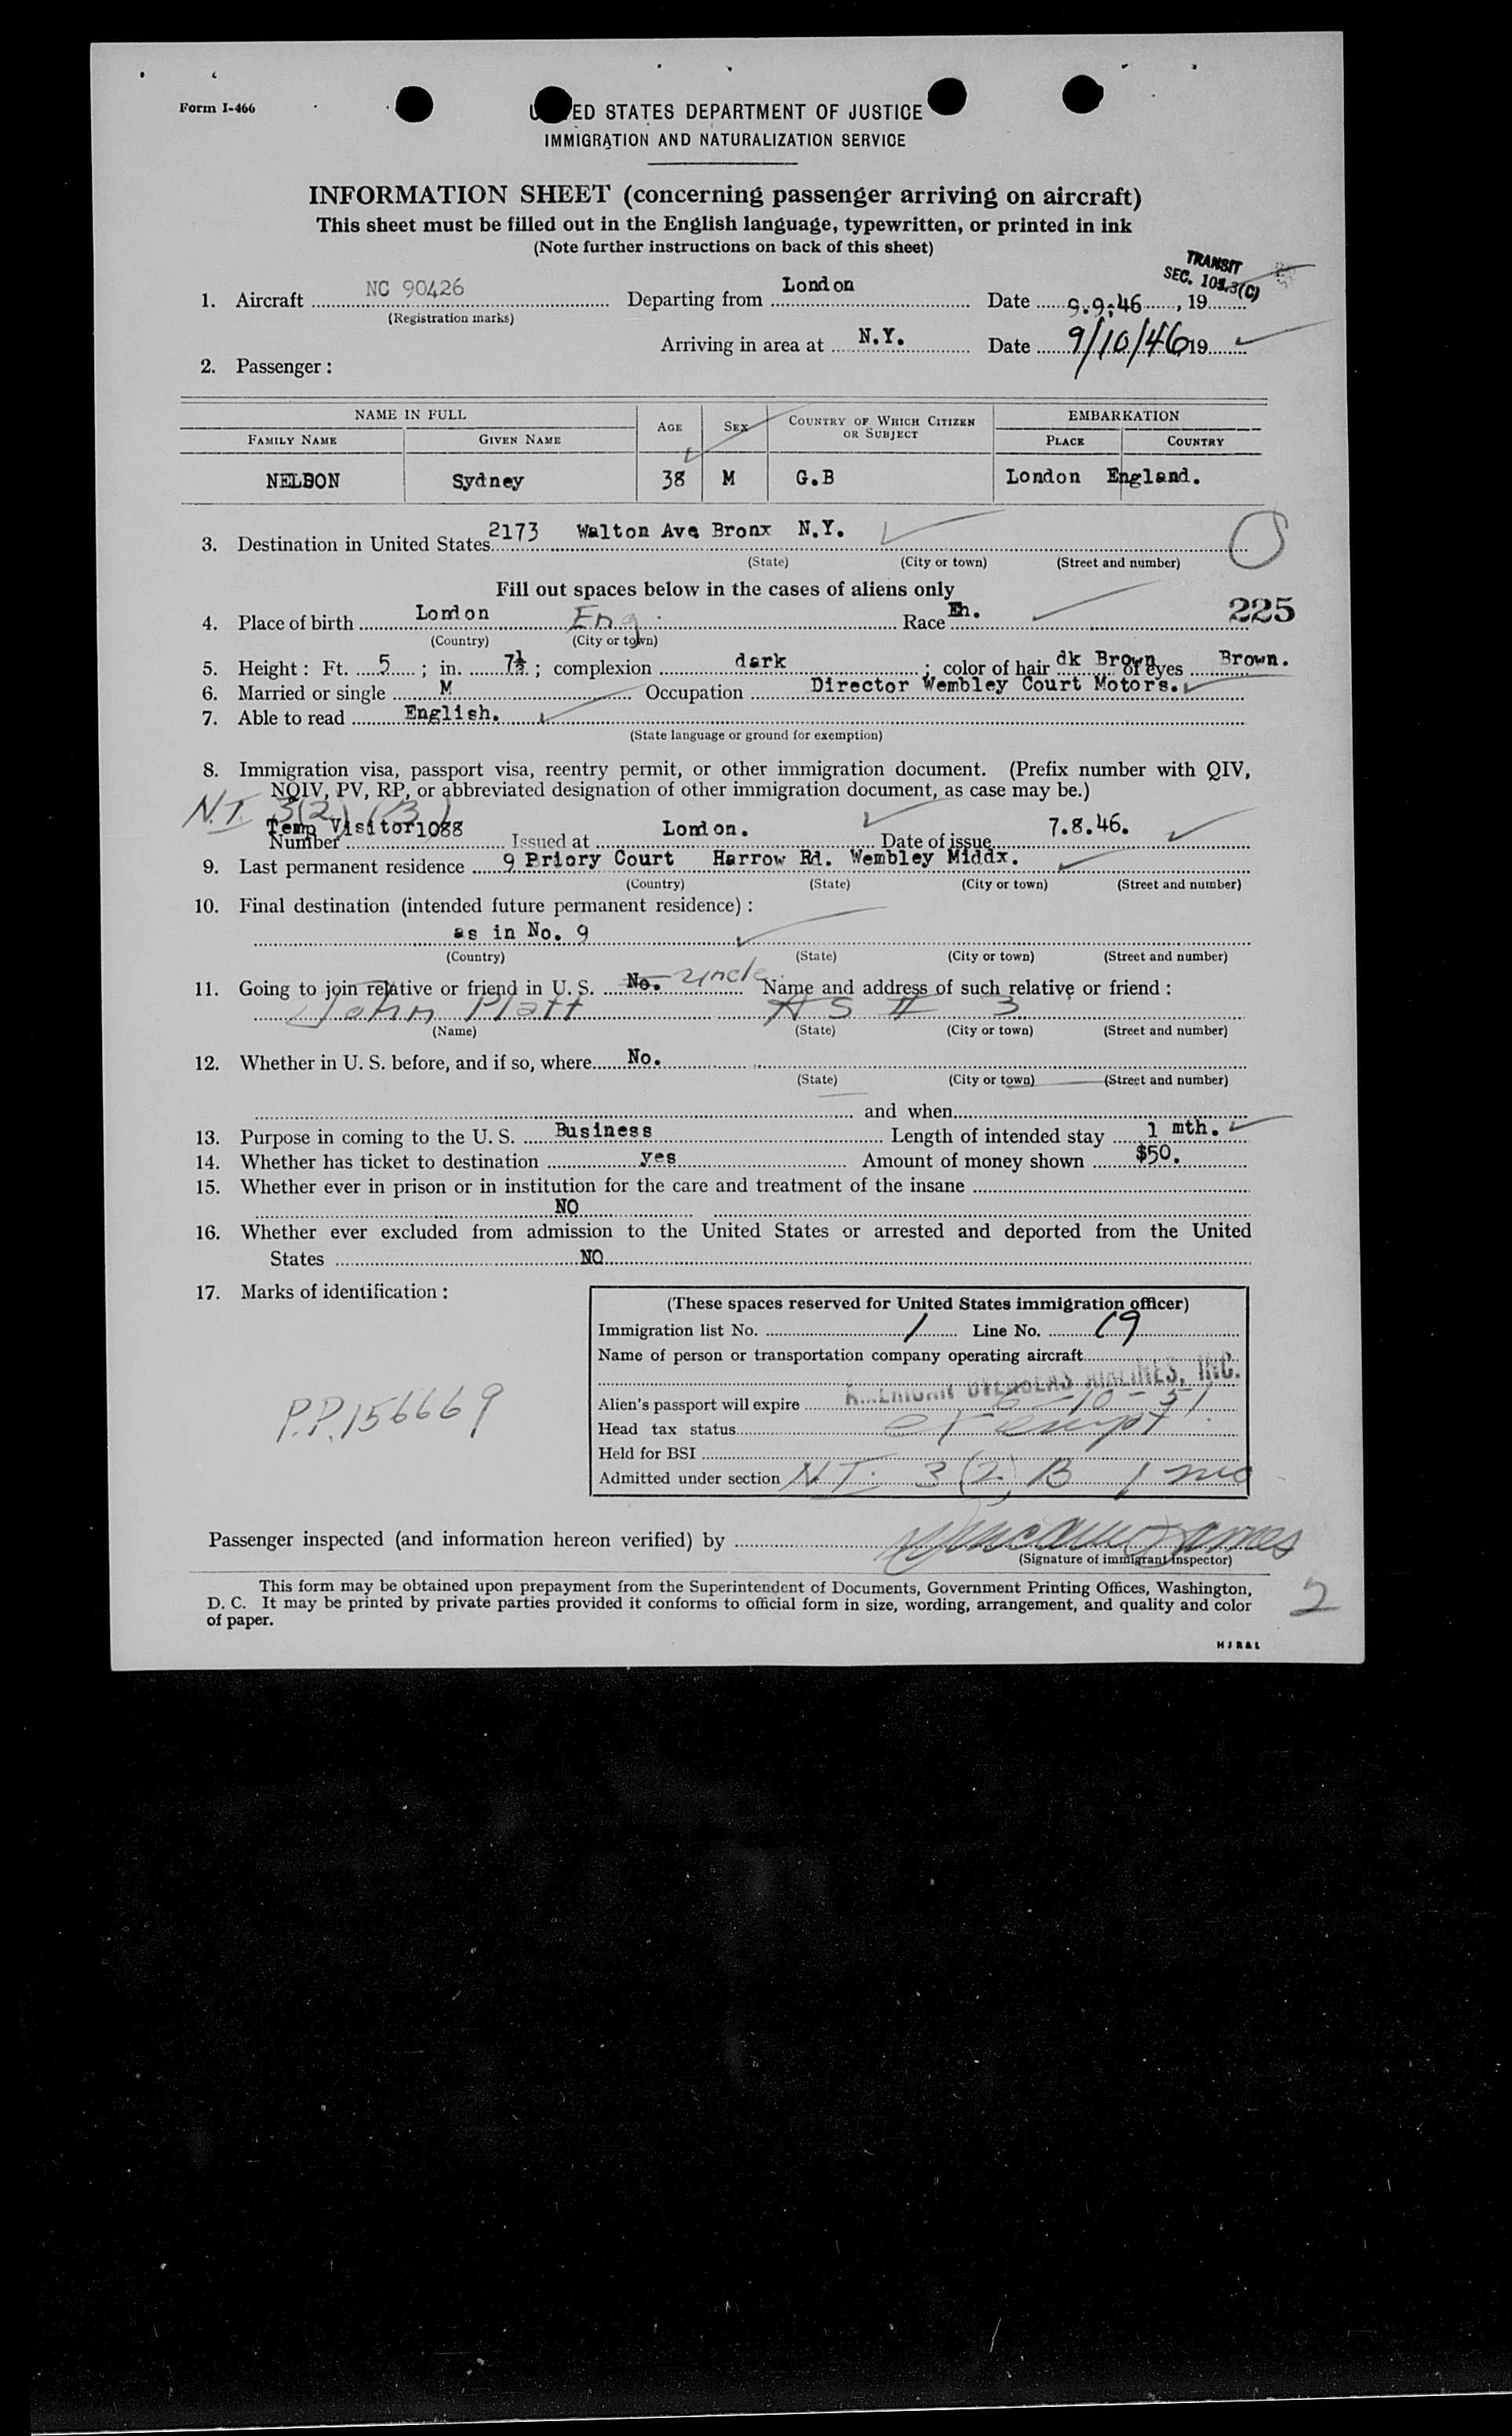 Form I-466
UNITED STATES DEPARTMENT OF JUSTICE
IMMIGRATION AND NATURALIZATION SERVICE
INFORMATION SHEET (concerning passenger arriving on aircraft)
This sheet must be filled out in the English language, typewritten, or printed in ink
(Note further instructions on back of this sheet)
TRANSIT
SEC. 103.3(C)
1. Aircraft NC 90426 Departing from London Date 9.9.46, 19
(Registration marks)
Arriving in area at N.Y. Date 9/10/46 19
2. Passenger:
NAME IN FULL AGE SEX COUNTRY OF WHICH CITIZEN OR SUBJECT EMBARKATION
FAMILY NAME GIVEN NAME PLACE COUNTRY
NELSON Sydney 38 M G.B London England.
3. Destination in United States 2173 Walton Ave Bronx N.Y.
(State) (City or town) (Street and number)
Fill out spaces below in the cases of aliens only
225
4. Place of birth London Eng. Race En.
(Country) (City or town)
5. Height: Ft. 5; in. 7½; complexion dark; color of hair dk Brown of eyes Brown.
6. Married or single M Occupation Director Wembley Court Motors.
7. Able to read English.
(State language or ground for exemption)
8. Immigration visa, passport visa, reentry permit, or other immigration document. (Prefix number with QIV,
NQIV, PV, RP, or abbreviated designation of other immigration document, as case may be.)
N.T. 3(2) (B)
Temp Visitor 1088
Number Issued at London. Date of issue 7.8.46.
9. Last permanent residence 9 Priory Court Harrow Rd. Wembley Middx.
(Country) (State) (City or town) (Street and number)
10. Final destination (intended future permanent residence):
as in No. 9
(Country) (State) (City or town) (Street and number)
11. Going to join relative or friend in U. S. No. uncle Name and address of such relative or friend:
John Platt AS # 3
(Name) (State) (City or town) (Street and number)
12. Whether in U. S. before, and if so, where No.
(State) (City or town) (Street and number)
and when
13. Purpose in coming to the U. S. Business Length of intended stay 1 mth.
14. Whether has ticket to destination yes Amount of money shown $50.
15. Whether ever in prison or in institution for the care and treatment of the insane
NO
16. Whether ever excluded from admission to the United States or arrested and deported from the United
States NO
17. Marks of identification:
(These spaces reserved for United States immigration officer)
Immigration list No. 1 Line No. 19
Name of person or transportation company operating aircraft
AMERICAN OVERSEAS AIRLINES, INC.
Alien's passport will expire 6-10-51.
Head tax status exempt
Held for BSI
Admitted under section N.T. 3(2) B 1 mo
P.P. 156669
Passenger inspected (and information hereon verified) by
(Signature of immigrant inspector)
This form may be obtained upon prepayment from the Superintendent of Documents, Government Printing Offices, Washington,
D. C. It may be printed by private parties provided it conforms to official form in size, wording, arrangement, and quality and color
of paper.
2
HJR&L